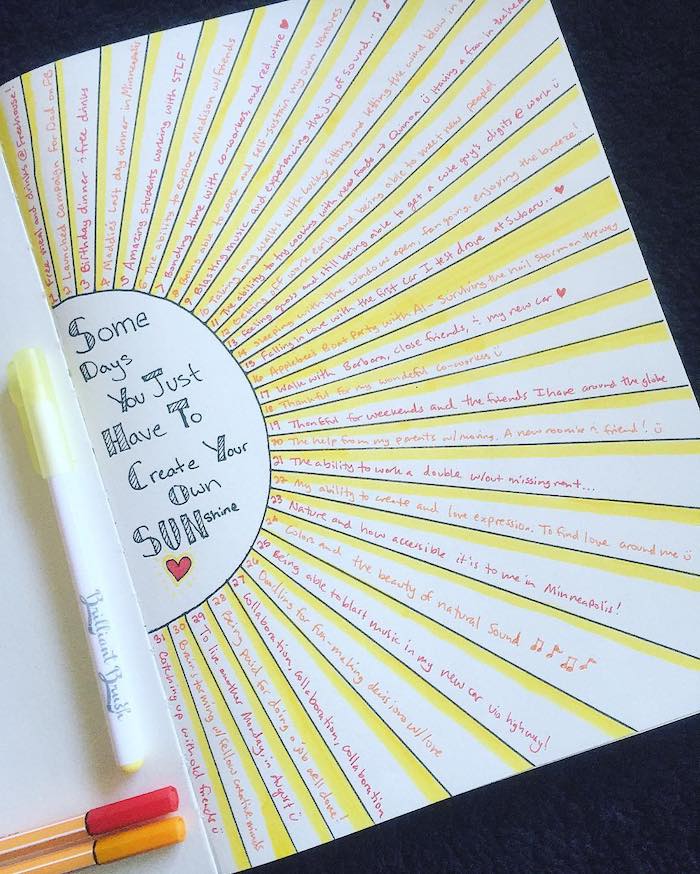 Some
Days
You Just
Have To
Create Your
Own
SUNshine
1 Free meal and drinks @ Freehouse!
2 Launched Campaign for Dad on FB
3 Birthday dinner & free drinks
4 Maddie's Last day dinner in Minneapolis
5 Amazing Students working with STLF
6 The ability to explore Madison w/friends
7 Bonding time with co-workers, and red wine ♥
8 Being able to work and self-sustain my own ventures
9 Blasting music and experiencing the joy of sound... ♫ ♪
10 Taking long walks with Lucky, sitting and letting the wind blow in
11 The ability to try cooking with new foods → Quinoa ü Having a fan in
12 Getting off work early and being able to meet new people!
13 Feeling gross and still being able to get a cute guy's digits @ work ü
14 Sleeping with the windows open, fan going, enjoying the breeze!
15 Falling in love with the first car I test drove at Subaru... ♥
16 Applebees Boat Party with Al - Surviving the hail storm on the way
17 Walk with Barbara, close friends, & my new car ♥
18 Thankful for my wondeful co-workers ü
19 Thankful for weekends and the friends I have around the globe
20 The help from my parents w/moving. A new roomie & friend! ü
21 The ability to work a double w/out missing rent...
22 My ability to create and love expression. To find love around me ü
23 Nature and how accessible it is to me in Minneapolis!
24 Colors and the beauty of natural sound ♫ ♪ ♫ ♪
25 Being able to blast music in my new car via highway!
26 Doodling for fun - making decisions w/love
27 Collaboration, collaboration, collaboration
28 Being paid for doing a job well done!
29 To live another Monday in August ü
30 Brainstorming w/fellow creative minds
31 Catching up with old friends ü
Brilliant Brush